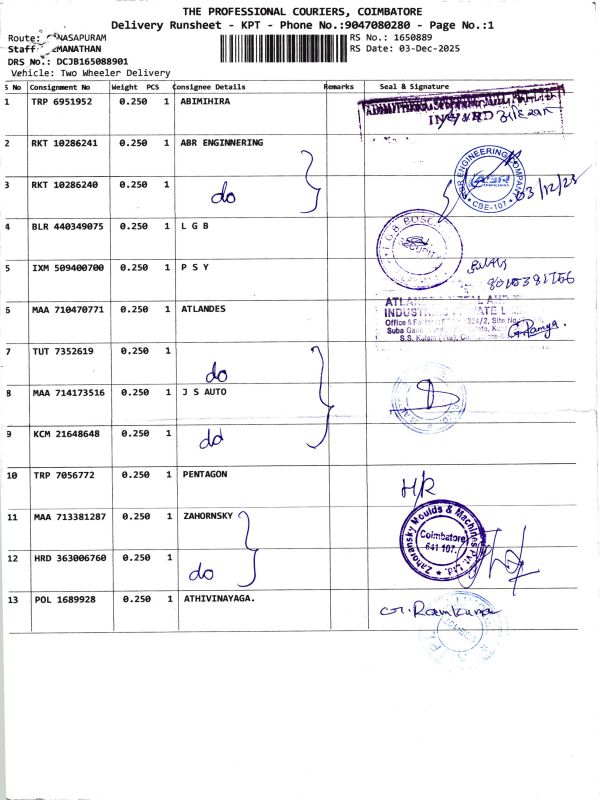 THE PROFESSIONAL COURIERS, COIMBATORE
Delivery Runsheet - KPT - Phone No.:9047080280 - Page No.:1
Route: NASAPURAM
RS No.: 1650889
Staff: MANATHAN
RS Date: 03-Dec-2025
DRS No: DCJB165088901
Vehicle: Two Wheeler Delivery
S No Consignment No Weight PCS Consignee Details Remarks Seal & Signature
1 TRP 6951952 0.250 1 ABIMIHIRA
2 RKT 10286241 0.250 1 ABR ENGINNERING
3 RKT 10286240 0.250 1 do
ENGINEERING COMPANY
CBE-107
03/12/25
4 BLR 440349075 0.250 1 L G B
L.G.B
5 IXM 509400700 0.250 1 P S Y
6 MAA 710470771 0.250 1 ATLANDES
INDUST
Office & Fa
224/2, Site No
Suba Gan
S.S. Kulam
G. Ramya.
7 TUT 7352619 0.250 1 do
8 MAA 714173516 0.250 1 J S AUTO
9 KCM 21648648 0.250 1 do
10 TRP 7056772 0.250 1 PENTAGON
11 MAA 713381287 0.250 1 ZAHORNSKY
Zahoransky Moulds & Machines Pvt. Ltd.
Coimbatore
641 107.
12 HRD 363006760 0.250 1 do
13 POL 1689928 0.250 1 ATHIVINAYAGA.
Ramkumar